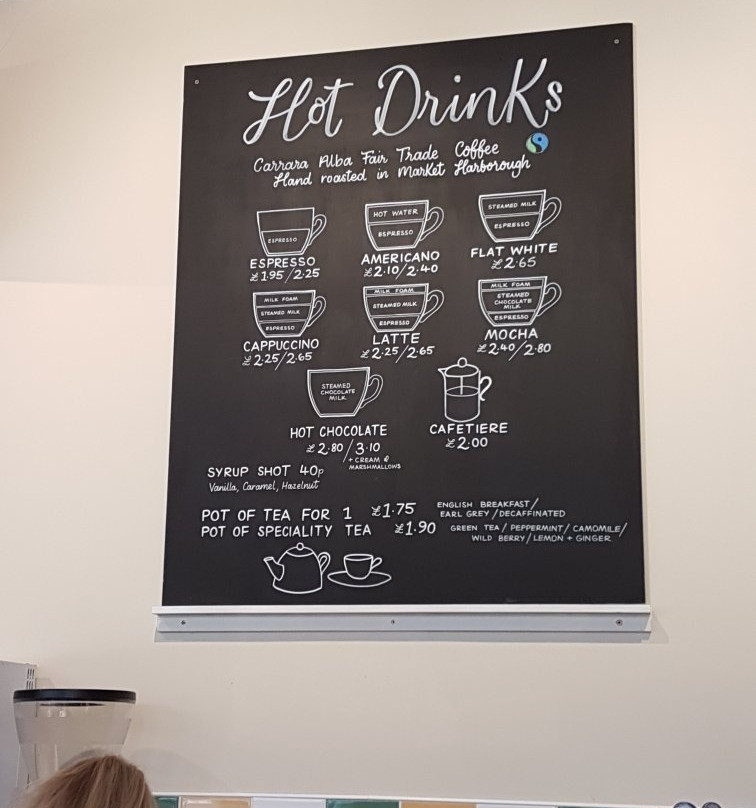 Hot Drinks
Carrara Alba Fair Trade Coffee
Hand roasted in Market Harborough
ESPRESSO
ESPRESSO
£1.95/2.25
HOT WATER
ESPRESSO
AMERICANO
£2.10/2.40
STEAMED MILK
ESPRESSO
FLAT WHITE
£2.65
MILK FOAM
STEAMED MILK
ESPRESSO
CAPPUCCINO
£2.25/2.65
MILK FOAM
STEAMED MILK
ESPRESSO
LATTE
£2.25/2.65
MILK FOAM
STEAMED
CHOCOLATE
MILK
ESPRESSO
MOCHA
£2.40/2.80
STEAMED
CHOCOLATE
MILK
HOT CHOCOLATE
£2.80/3.10
+ CREAM &
MARSHMALLOWS
CAFETIERE
£2.00
SYRUP SHOT 40p
Vanilla, Caramel, Hazelnut
POT OF TEA FOR 1 £1.75
ENGLISH BREAKFAST/
EARL GREY/DECAFFINATED
POT OF SPECIALITY TEA £1.90
GREEN TEA/PEPPERMINT/CAMOMILE/
WILD BERRY/LEMON + GINGER